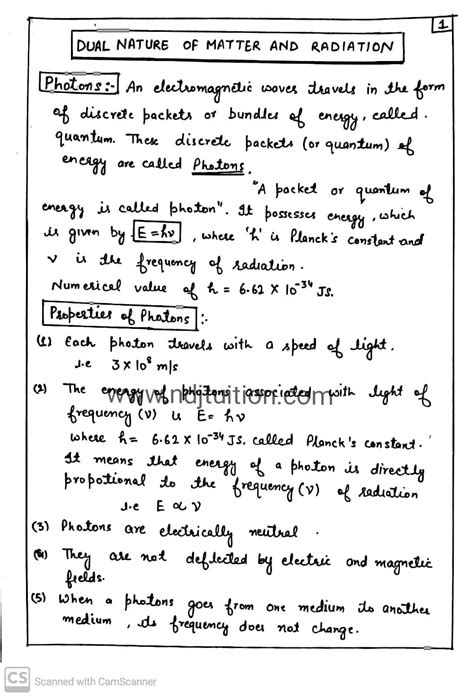 1
DUAL NATURE OF MATTER AND RADIATION
Photons:- An electromagnetic waves travels in the form
of discrete packets or bundles of energy, called.
quantum. These discrete packets (or quantum) of
energy are called Photons.
"A packet or quantum of
energy is called photon". It possesses energy, which
is given by E=hν, where 'h' is Planck's constant and
ν is the frequency of radiation.
Numerical value of h = 6.62 X 10⁻³⁴ JS.
Properties of Photons :-
(1) Each photon travels with a speed of light.
i.e 3X10⁸ m/s
(2) The energy of photons associated with light of
www.ndjtuition.com
frequency (ν) is E= hν
where h= 6.62 X 10⁻³⁴ JS. called Planck's constant.
It means that energy of a photon is directly
propotional to the frequency(ν) of radiation
i.e E ∝ ν
(3) Photons are electrically neutral.
(4) They are not deflected by electric and magnetic
fields.
(5) When a photons goes from one medium to another
medium, its frequency does not change.
CS Scanned with CamScanner